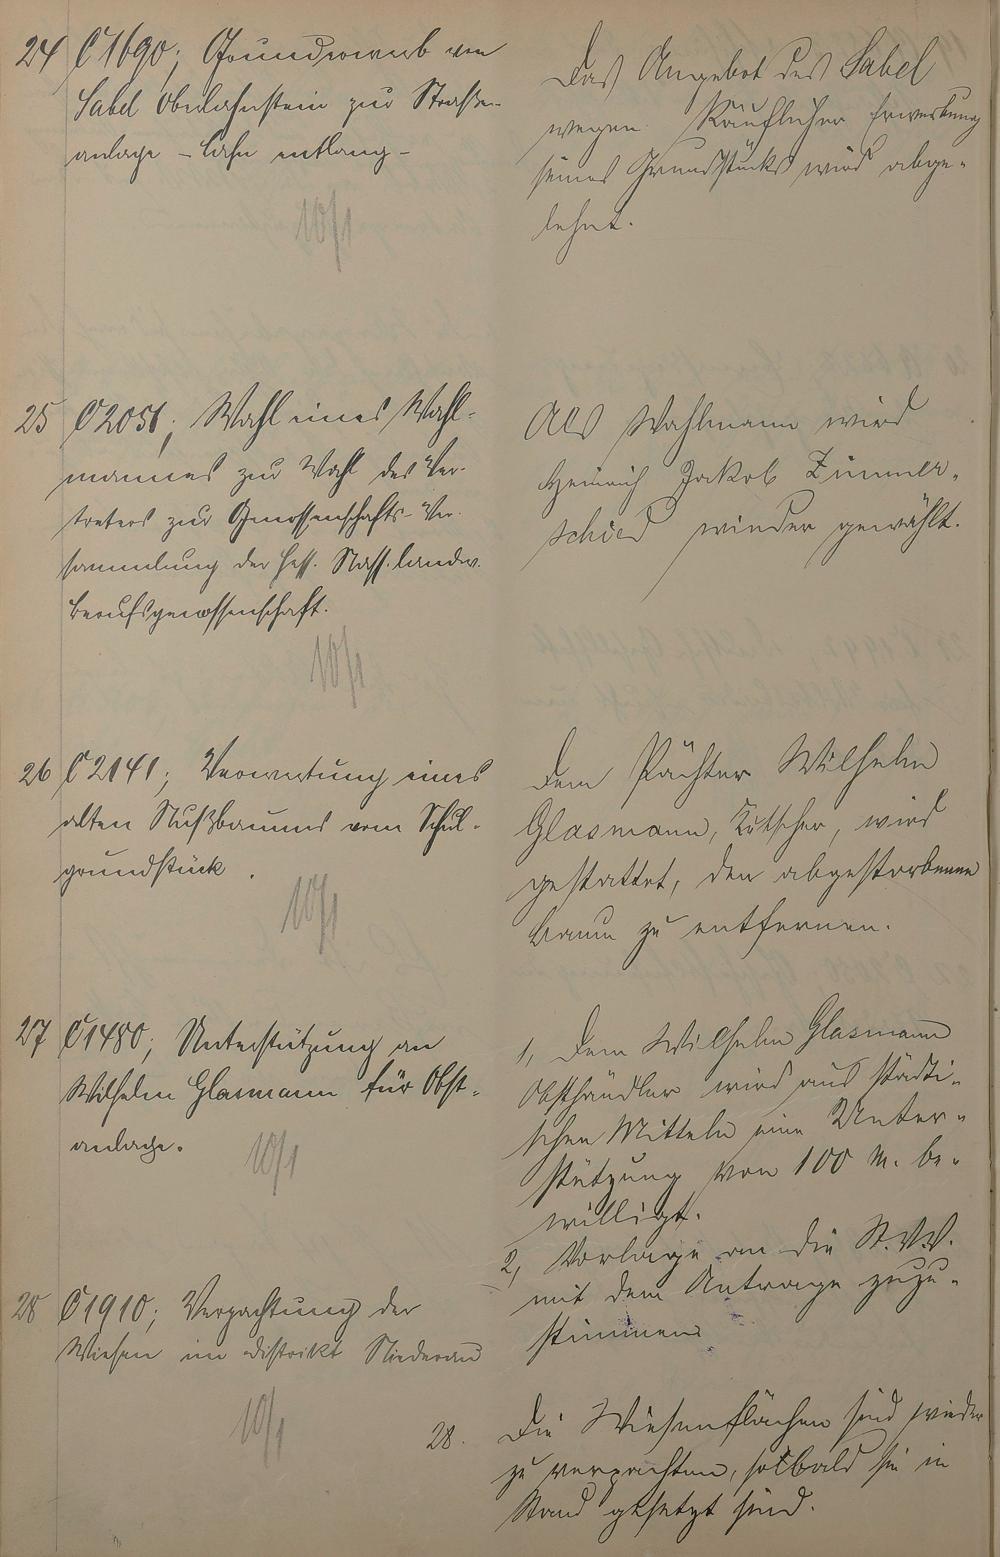 24 C 1690; Grunderwerb von
Sabel Oberlahnstein zur Straßen-
anlage – Lahn entlang –
10/1
Das Angebot des Sabel
wegen Käuflicher Erwerbung
seines Grundstücks wird abge-
lehnt.
25 C 2051; Wahl eines Wahl-
mannes zur Wahl des Ver-
treters zur Genossenschafts-Ver-
sammlung der Hess. Nass. landw.
Berufsgenossenschaft.
10/1
Als Wahlmann wird
Heinrich Jakob Zimmer-
schied wieder gewählt.
26 C 2141; Verwertung eines
alten Nußbaums vom Schul-
grundstück.
10/1
Dem Pächter Wilhelm
Glasmann, Kutscher, wird
gestattet, den abgestorbenen
Baum zu entfernen.
27 C 1480; Unterstützung an
Wilhelm Glasmann für Obst-
anlage.
10/1
1, Dem Wilhelm Glasmann
Obsthändler wird aus städti-
schen Mitteln eine Unter-
stützung von 100 M. be-
willigt.
2, Vorlage an die St.V.V.
mit dem Antrage zuzu-
stimmen
28 C 1910; Verpachtung der
Wiesen im Distrikt Niederau
10/1
28. Die Wiesenflächen sind wieder
zu verpachten, sobald sie in
Stand gesetzt sind.